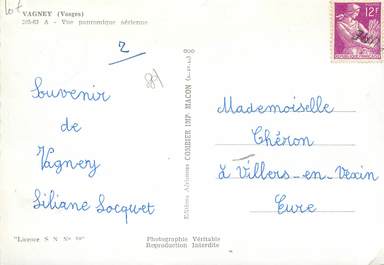 VAGNEY (Vosges)
205-63 A - Vue panoramique aérienne
2
Souvenir
de
Vagney
Liliane Locquet
"Licence S N N°
Editions Aériennes COMBIER IMP. MACON
Photographie Véritable
Reproduction Interdite
12F
Mademoiselle
Chéron
à Villers-en-Vexin
Eure